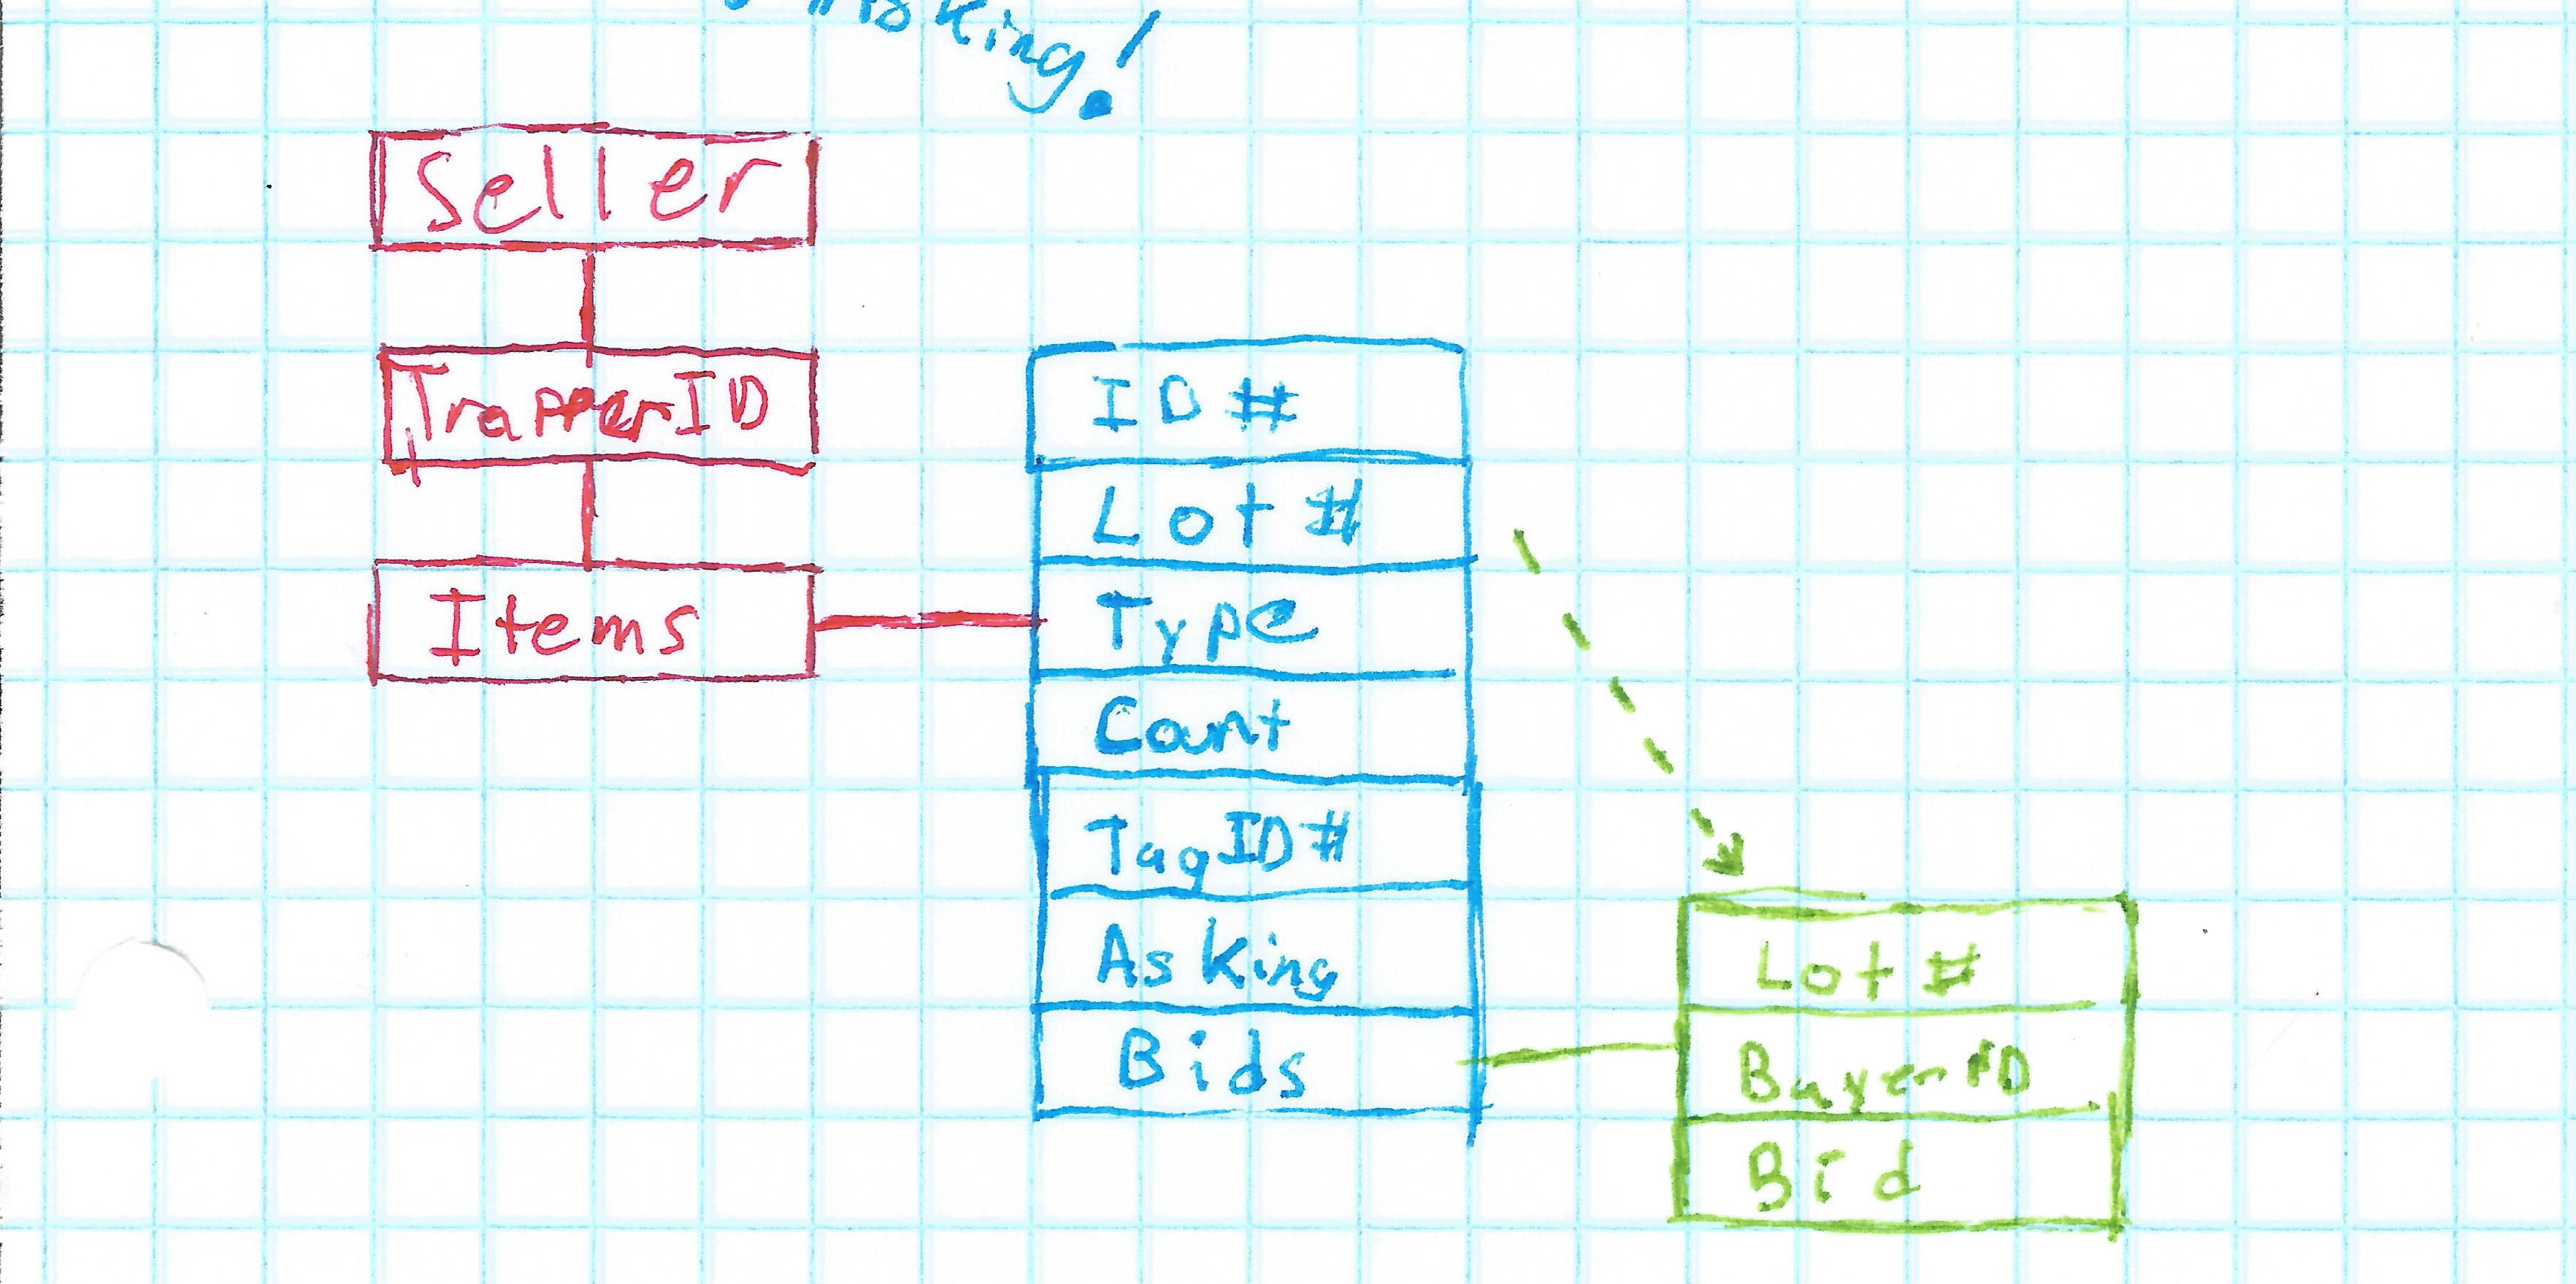 Asking!
Seller
TrapperID
Items
ID #
Lot #
Type
Count
TagID#
Asking
Bids
Lot #
BuyerID
Bid